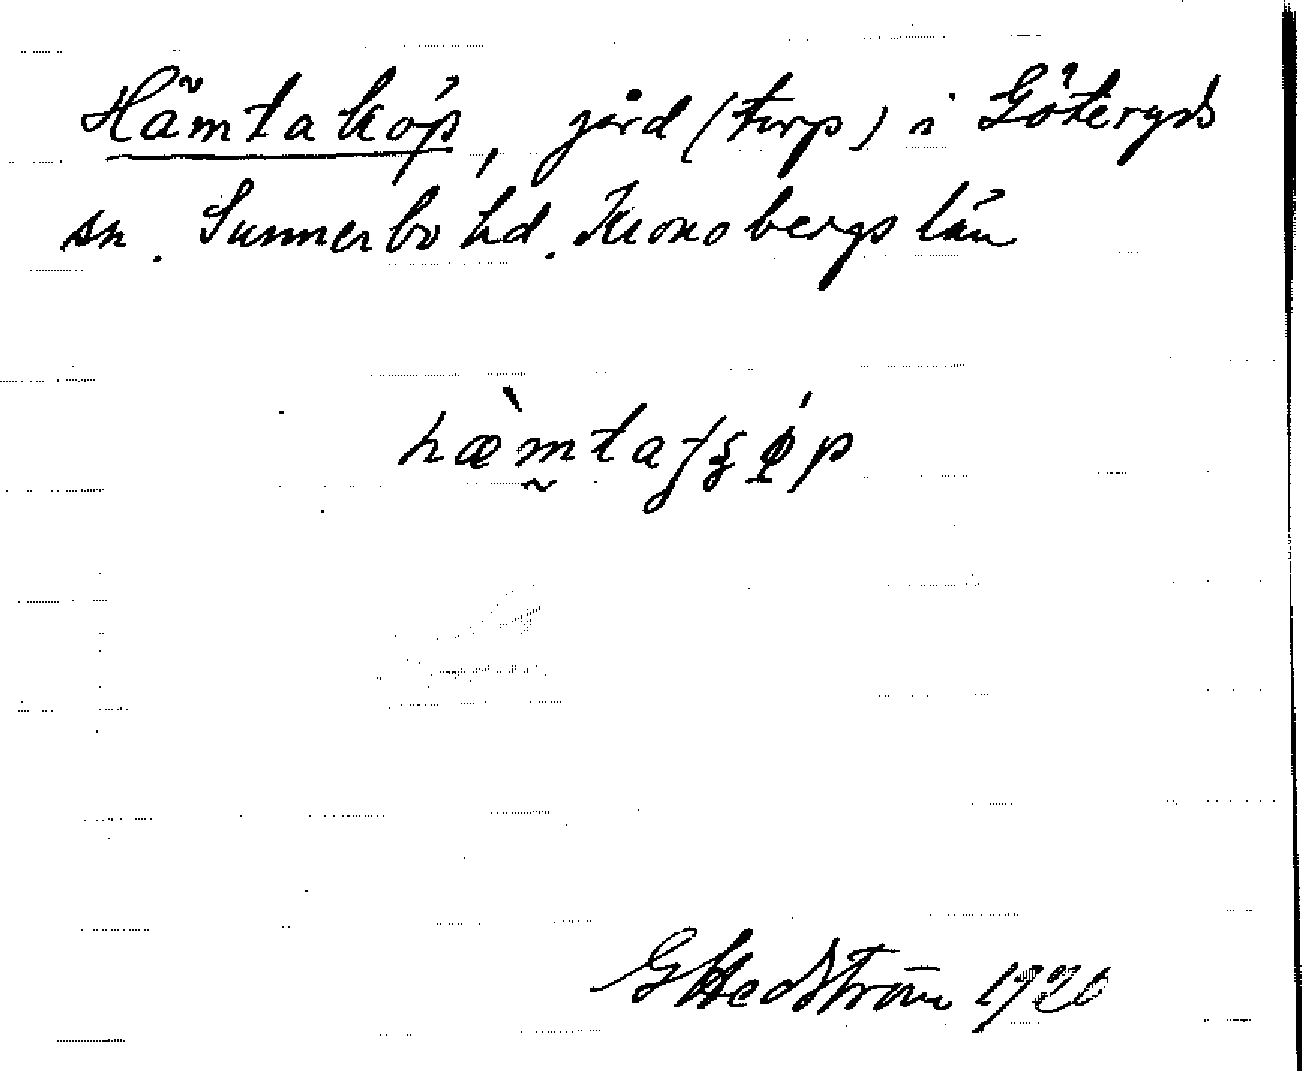 Hämtaköp, gård (torp) i Göteryds
sn. Sunnerbo hd. Kronobergs län
G Hedström 1920